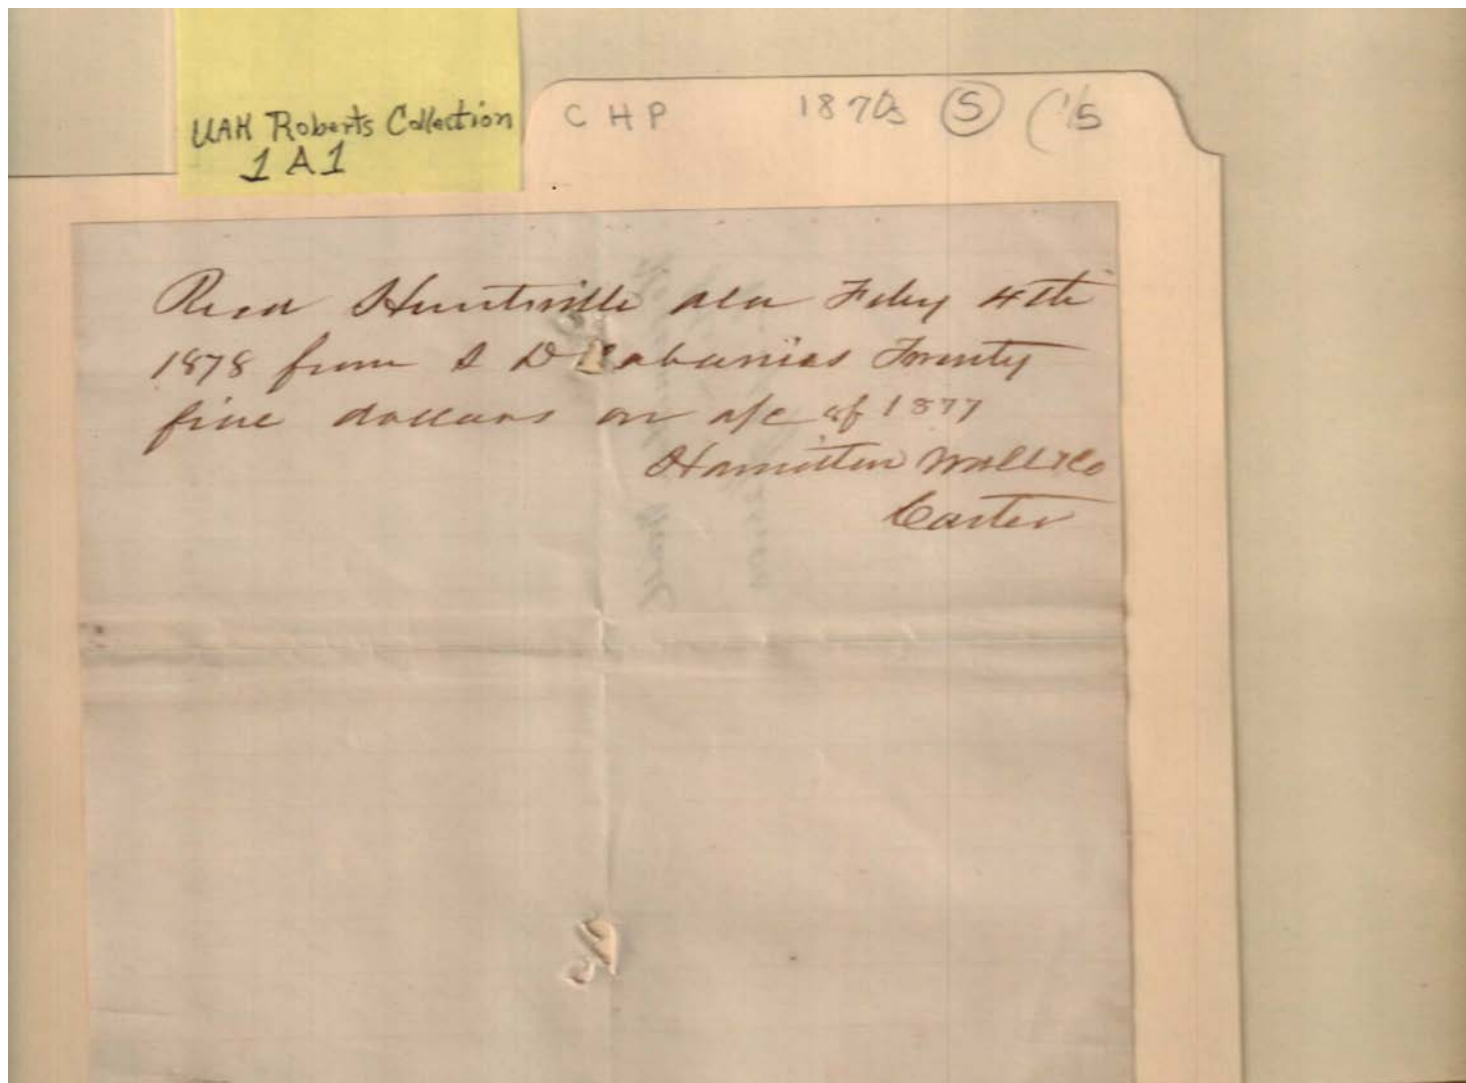 UAH Roberts Collection
1 A 1
C H P 1870s S (1/5
Recd Huntsville ala Feby 4th
1878 from S D Cabaniss Twenty
five dollars on a/c of 1877
Hamilton Wall & Co
Carter